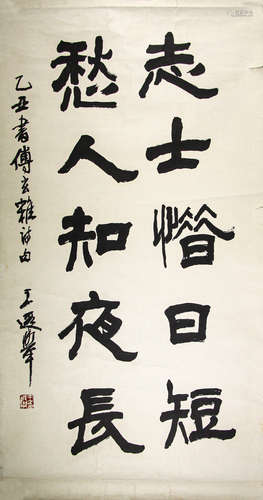 志士惜日短
愁人知夜長
乙丑書傅玄雜詩句 王遐舉